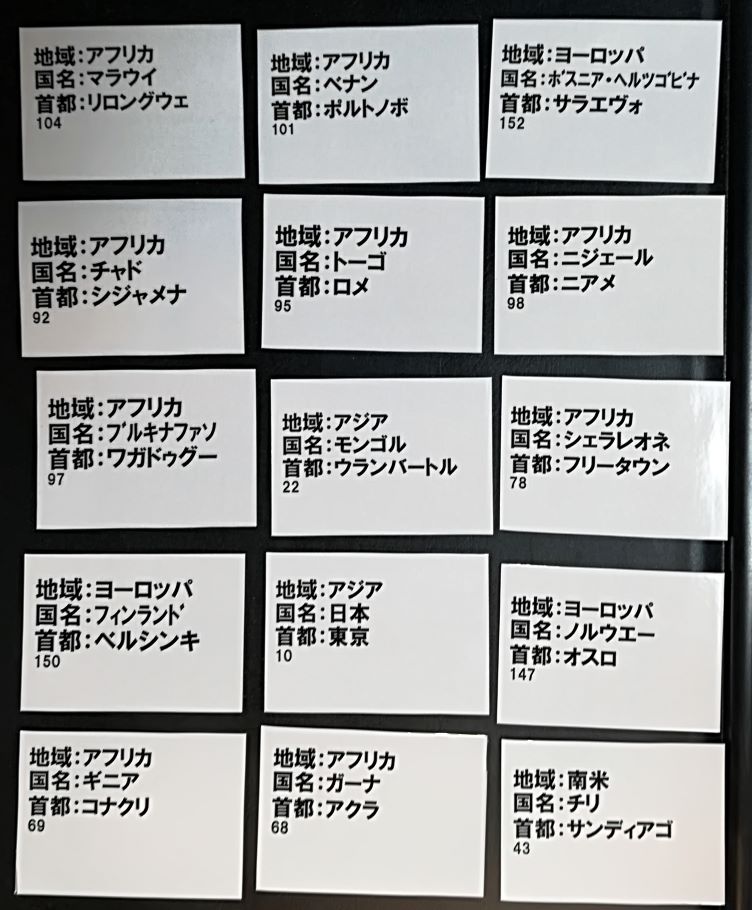 地域:アフリカ
国名:マラウイ
首都:リロングウェ
104
地域:アフリカ
国名:ベナン
首都:ポルトノボ
101
地域:ヨーロッパ
国名:ボスニア・ヘルツゴビナ
首都:サラエヴォ
152
地域:アフリカ
国名:チャド
首都:シジャメナ
92
地域:アフリカ
国名:トーゴ
首都:ロメ
95
地域:アフリカ
国名:ニジェール
首都:ニアメ
98
地域:アフリカ
国名:ブルキナファソ
首都:ワガドゥグー
97
地域:アジア
国名:モンゴル
首都:ウランバートル
22
地域:アフリカ
国名:シェラレオネ
首都:フリータウン
78
地域:ヨーロッパ
国名:フィンランド
首都:ベルシンキ
150
地域:アジア
国名:日本
首都:東京
10
地域:ヨーロッパ
国名:ノルウエー
首都:オスロ
147
地域:アフリカ
国名:ギニア
首都:コナクリ
69
地域:アフリカ
国名:ガーナ
首都:アクラ
68
地域:南米
国名:チリ
首都:サンディアゴ
43